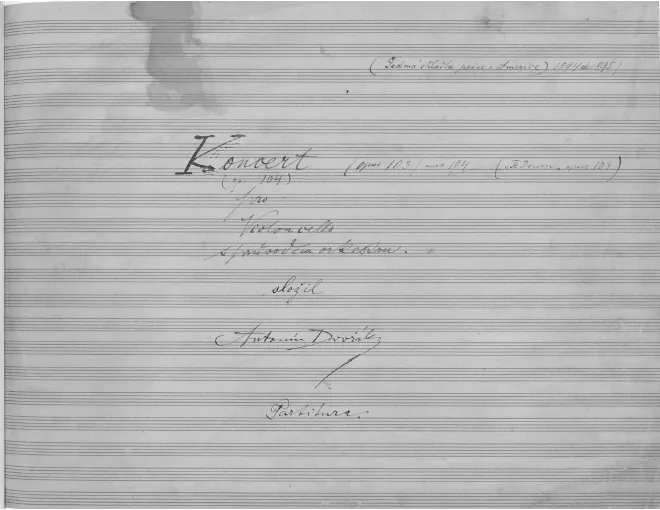 (Sedmá skladba psána v Americe) 1894 do 1895)
Koncert (opus 103) nach 104 („Te Deum“ opus 103)
(op. 104)
pro
Violoncello
s průvodem orkestru.
složil
Antonín Dvořák
Partitura.